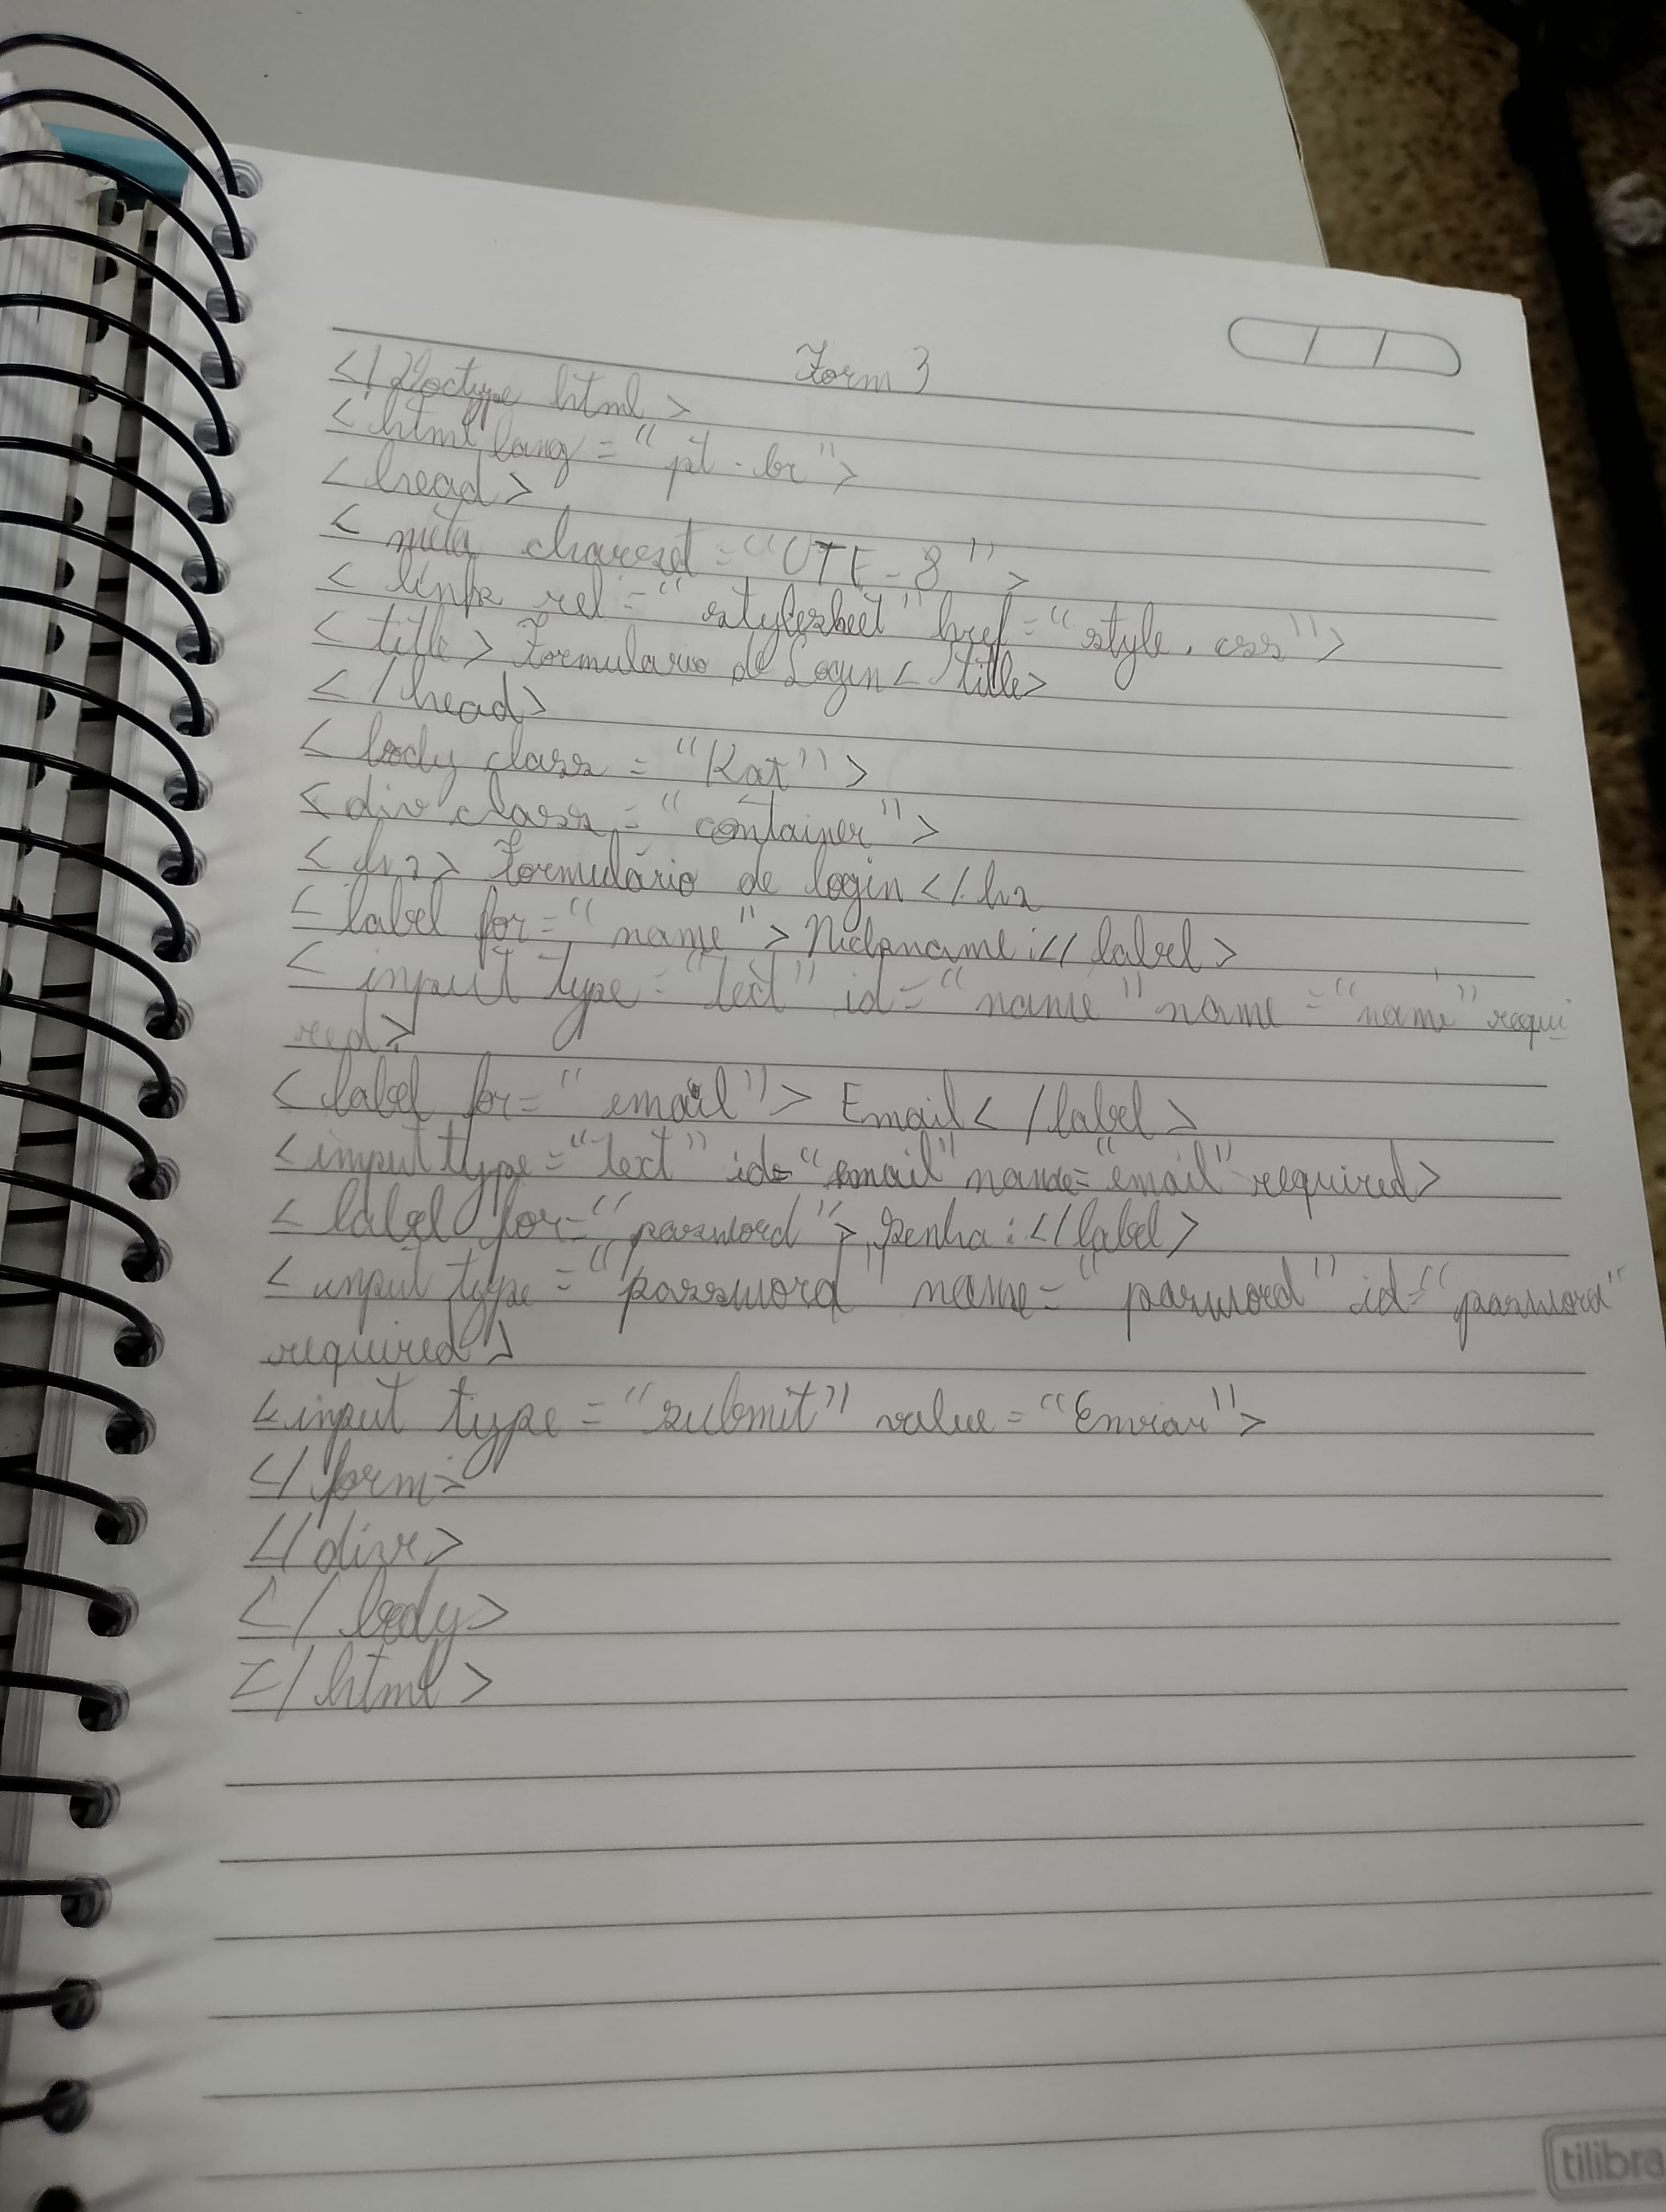 Form 3
<!Doctype html>
<html lang="pt-br">
<head>
<meta charset="UTF-8">
<link rel="stylesheet" href="style.css">
<title>Formulario de Login</title>
</head>
<body class="Kat">
<div class="container">
<h2> Formulário de login </h2
<label for="name">Nickname:</label>
<input type="text" id="name" name="name" requi
red>
<label for="email"> Email</label>
<input type="text" id="email" name="email" required>
<label for="password">Senha:</label>
<input type="password" name="password" id="password"
required>
<input type="submit" value="Enviar">
</form>
</div>
</body>
</html>
tilibra